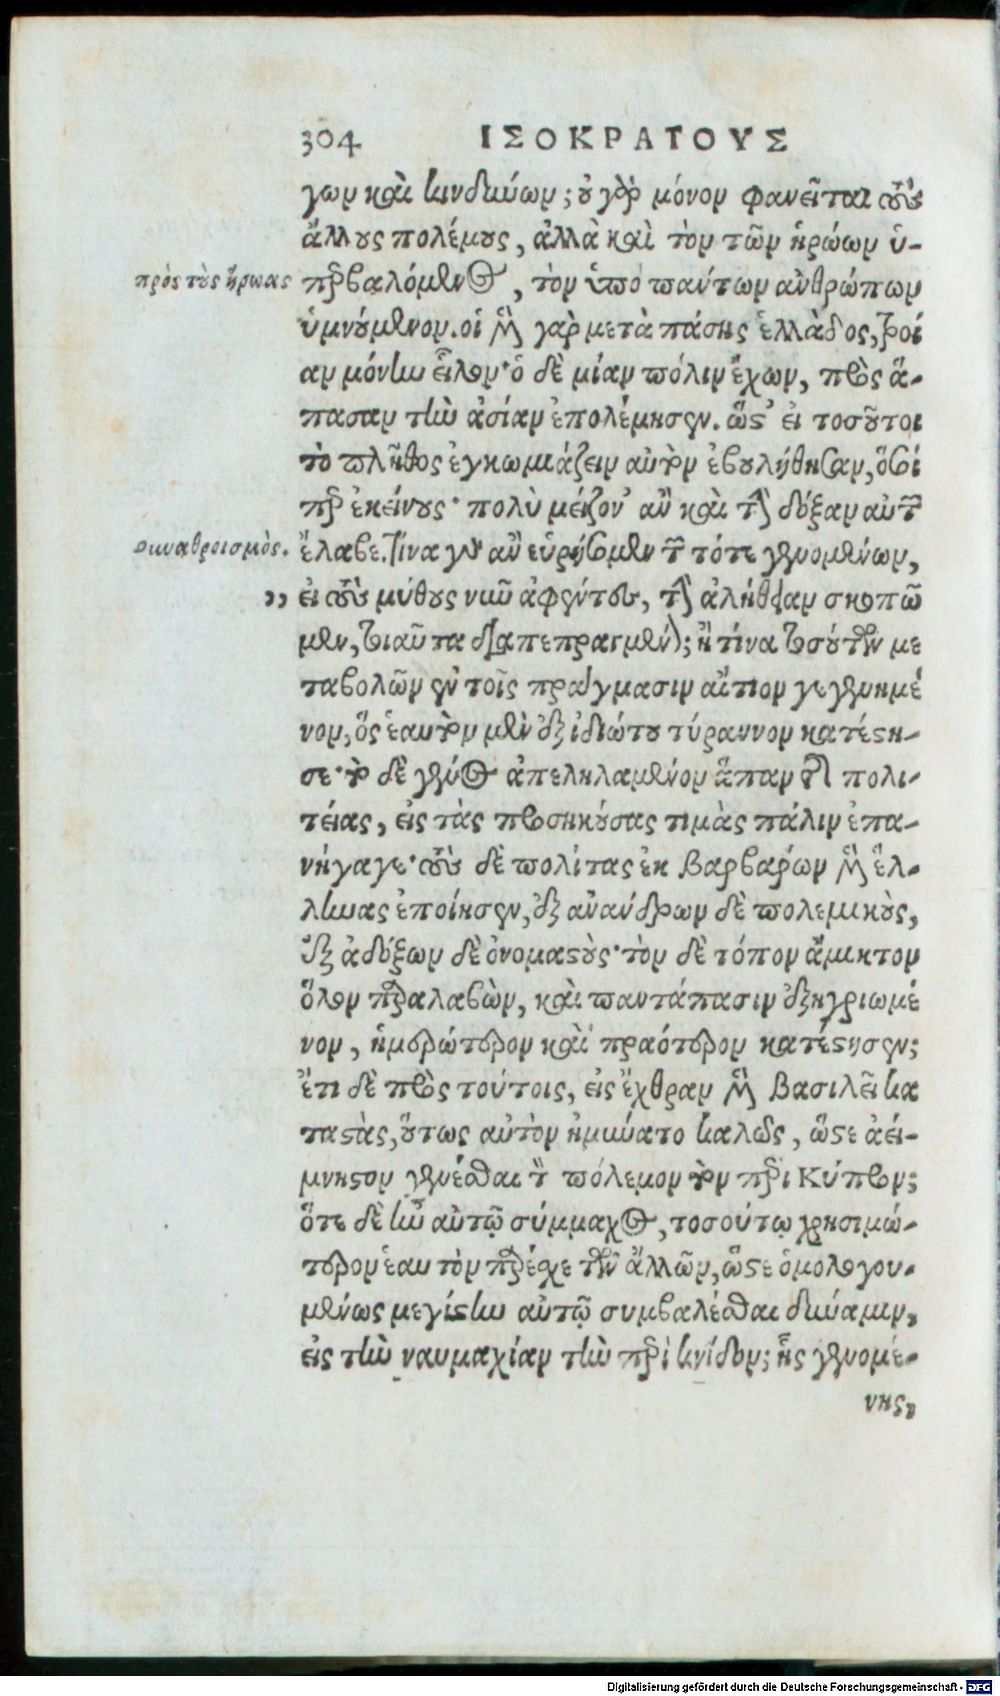 304 ΙΣΟΚΡΑΤΟΥΣ
γων καὶ κινδύνων; οὐ γὰρ μόνον φανεῖται τοὺς
ἄλλους πολέμους, ἀλλὰ καὶ τὸν τῶν ἡρώων ὑ-
πρὸς τοὺς ἥρωας
περβαλόμενος, τὸν ὑπὸ πάντων ἀνθρώπων
ὑμνούμενον. οἱ μὲν γὰρ μετὰ πάσης ἑλλάδος, Τροί
αν μόνην εἷλον· ὁ δὲ μίαν πόλιν ἔχων, πρὸς ἅ-
πασαν τὴν ἀσίαν ἐπολέμησεν. ὥστ' εἰ τοσοῦτοι
τὸ πλῆθος ἐγκωμιάζειν αὐτὸν ἐβουλήθησαν, ὅσοι
περ ἐκείνους· πολὺ μείζον' ἂν καὶ τὴν δόξαν αὐτῶν
συναθροισμὸς.
ἔλαβε. Τίνα γὰρ ἂν εὑρήσομεν τῶν τότε γενομένων,
,, εἰ τοὺς μύθους νῦν ἀφέντες, τὴν ἀλήθειαν σκοποῖ
μεν, τοιαῦτα διαπεπραγμένον; ἢ τίνα τοσούτων με
ταβολῶν ἐν τοῖς πράγμασιν αἴτιον γεγενημέ
νον, ὃς ἑαυτὸν μὲν ἐξ ἰδιώτου τύραννον κατέστη-
σε· τὸ δὲ γένος ἀπεληλαμένον ἅπαν τῆς πολι-
τείας, εἰς τὰς προσηκούσας τιμὰς πάλιν ἐπα-
νήγαγε· τοὺς δὲ πολίτας ἐκ βαρβάρων μὲν ἕλ-
ληνας ἐποίησεν, ἐξ ἀνάνδρων δὲ πολεμικοὺς,
ἐξ ἀδόξων δὲ ὀνομαστοὺς· τὸν δὲ τόπον ἄμικτον
ὅλον παραλαβὼν, καὶ παντάπασιν ἐξηγριωμέ
νον, ἡμερώτερον καὶ πραότερον κατέστησεν;
ἔτι δὲ πρὸς τούτοις, εἰς ἔχθραν μὲν βασιλεῖ κα
ταστὰς, οὕτως αὐτὸν ἠμύνατο καλῶς, ὥστε ἀεί-
μνηστον γενέσθαι τὸν πόλεμον τὸν περὶ Κύπρον;
ὅτε δὲ ἦν αὐτῷ σύμμαχος, τοσούτῳ χρησιμώ-
τερον ἑαυτὸν παρέσχε τῶν ἄλλων, ὥστε ὁμολογου-
μένως μεγίστην αὐτῷ συμβαλέσθαι δύναμιν,
εἰς τὴν ναυμαχίαν τὴν περὶ Κνίδον; ἧς γενομέ-
νης,
Digitalisierung gefördert durch die Deutsche Forschungsgemeinschaft - DFG